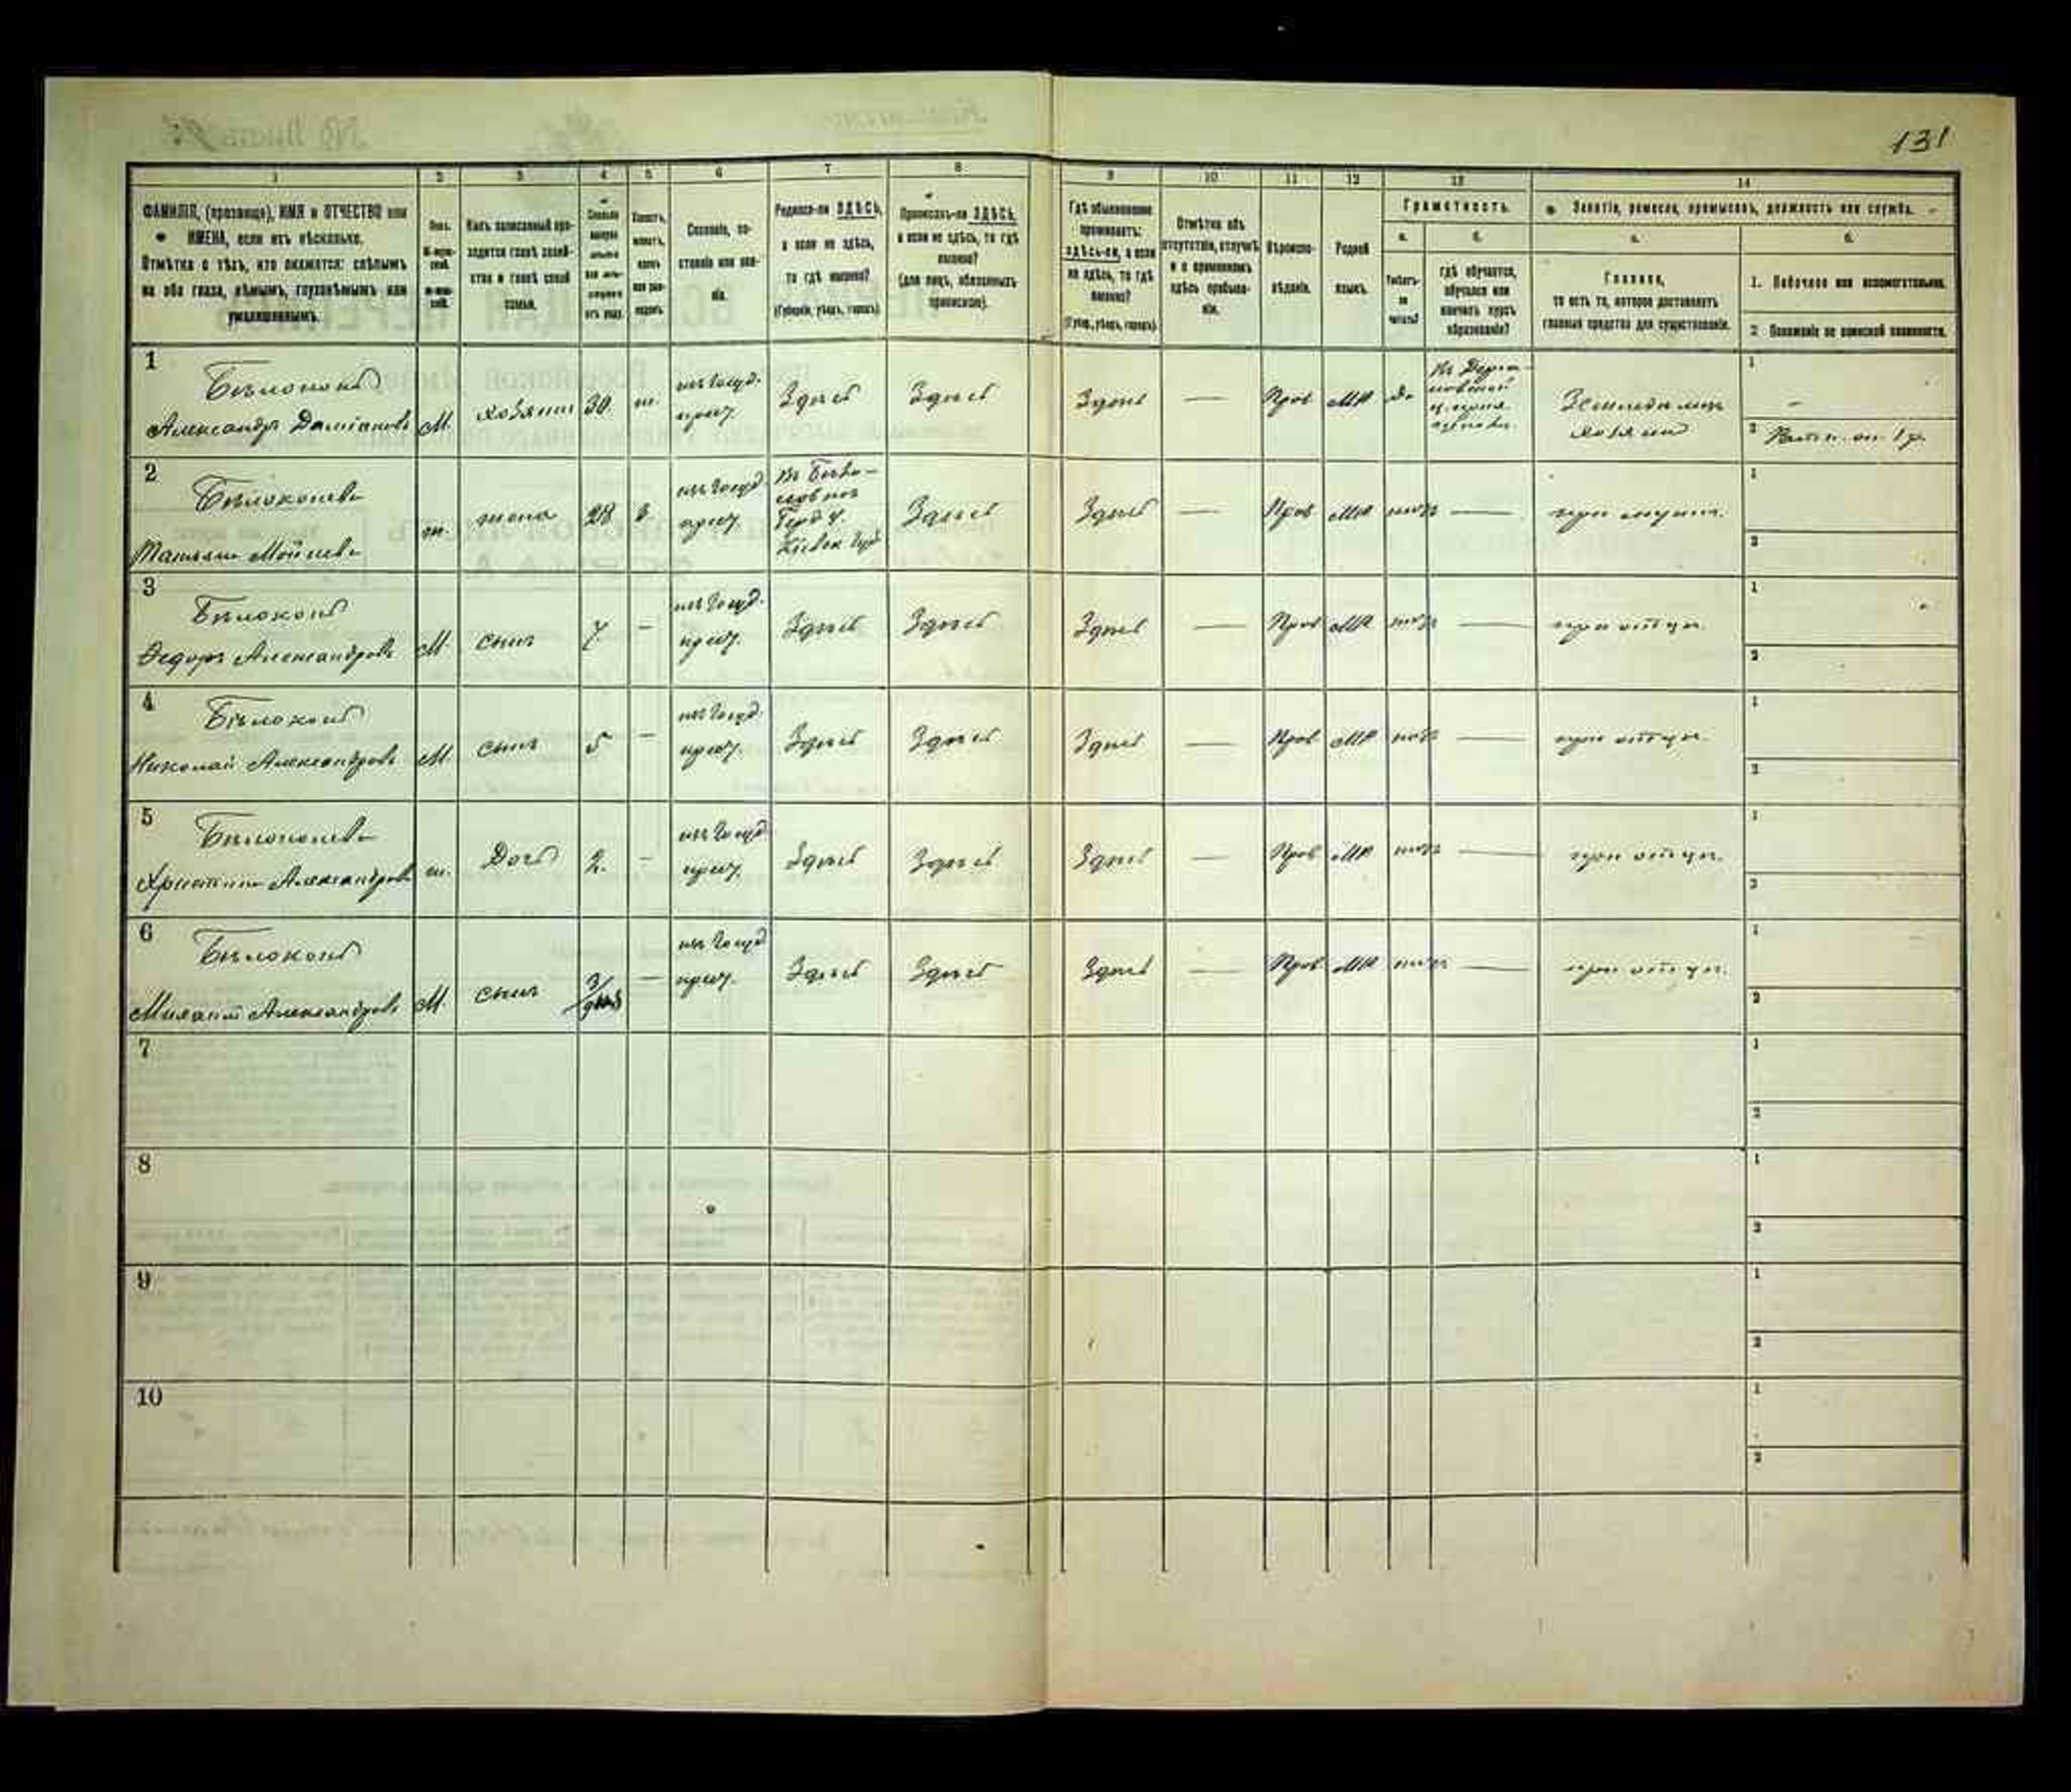 131
1 2 3 4 5 6 7 8 9 10 11 12 13 14
ФАМИЛІЯ, (прозвище), ИМЯ и ОТЧЕСТВО или
ИМЕНА, если ихъ нѣсколько.
Отмѣтка о тѣхъ, кто окажется: слѣпымъ
на оба глаза, нѣмымъ, глухонѣмымъ или
умалишеннымъ.
Полъ.
М-мужс-
кой.
ж-жен-
скій.
Какъ записанный при-
ходится главѣ хозяй-
ства и главѣ своей
семьи.
Сколько
минуло
лѣтъ
или мѣся-
цевъ
отъ роду.
Холостъ,
женатъ,
вдовъ
или раз-
веденъ.
Сословіе, со-
стояніе или зва-
ніе.
Родился-ли ЗДѢСЬ,
а если не здѣсь,
то гдѣ именно?
(Губернія, уѣздъ, городъ).
Приписанъ-ли ЗДѢСЬ,
а если не здѣсь, то гдѣ
именно?
(для лицъ, обязанныхъ
припискою).
Гдѣ обыкновенно
проживаетъ:
ЗДѢСЬ-ли, а если
не здѣсь, то гдѣ
именно?
(Губер., уѣздъ, городъ).
Отмѣтка объ
отсутствіи, отлучкѣ
и о временномъ
здѣсь пребыва-
ніи.
Вѣроиспо-
вѣданіе.
Родной
языкъ.
Грамотность.
а. б.
Умѣетъ-
ли
читать?
гдѣ обучается,
обучался или
кончилъ курсъ
образованія?
Занятіе, ремесло, промыселъ, должность или служба.
а. б.
Главное,
то есть то, которое доставляетъ
главныя средства для существованія.
1. Побочное или вспомогательное.
2. Положеніе по воинской повинности.
1 Бѣлоконь
Александръ Даміановъ М. хозяинъ 30 ж. изъ Госуд. крест. Здѣсь Здѣсь Здѣсь — Прав МР да Земледѣлецъ хозяинъ 1 —
2
2 Бѣлоконева
Татьяна Мойсеева ж. жена 28 з. изъ Госуд. крест. Здѣсь Здѣсь — Прав МР нѣтъ — при мужѣ. 1
2
3 Бѣлоконь
Федоръ Александровъ М. сынъ 7 — изъ Госуд. крест. Здѣсь Здѣсь Здѣсь — Прав МР нѣтъ — при отцѣ. 1
2
4 Бѣлоконь
Николай Александровъ М. сынъ 5 — изъ Госуд. крест. Здѣсь Здѣсь Здѣсь — Прав МР нѣтъ — при отцѣ. 1
2
5 Бѣлоконева
Христина Александров ж. Дочь 2. — изъ Госуд. крест. Здѣсь Здѣсь Здѣсь — Прав МР нѣтъ — при отцѣ. 1
2
6 Бѣлоконь
Михаилъ Александровъ М. сынъ 3/дня — изъ Госуд. крест. Здѣсь Здѣсь Здѣсь — Прав МР нѣтъ — при отцѣ. 1
2
7 1
2
8 1
2
9 1
2
10 1
2